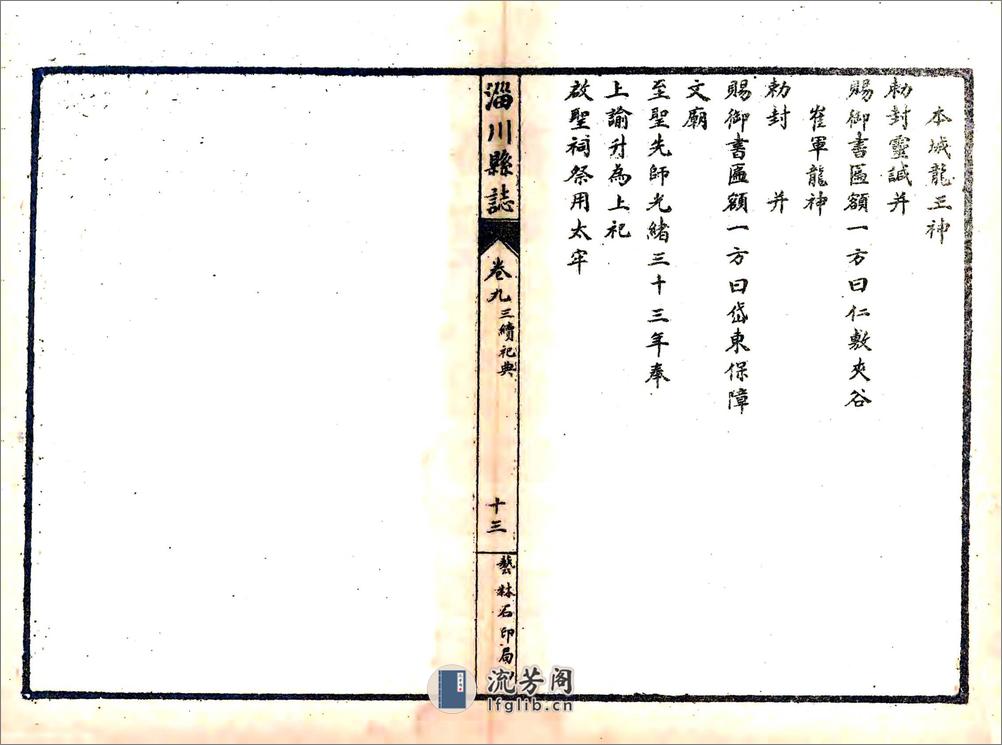 本城龍王神
勅封靈諴并
賜御書匾額一方曰仁敷夾谷
崔軍龍神
勅封　并
賜御書匾額一方曰岱東保障
文廟
至聖先師光緒三十三年奉
上諭升為上祀
啟聖祠祭用太牢
淄川縣誌
卷九
三續祀典
十三
藝林石印局
流芳阁
lfglib.cn